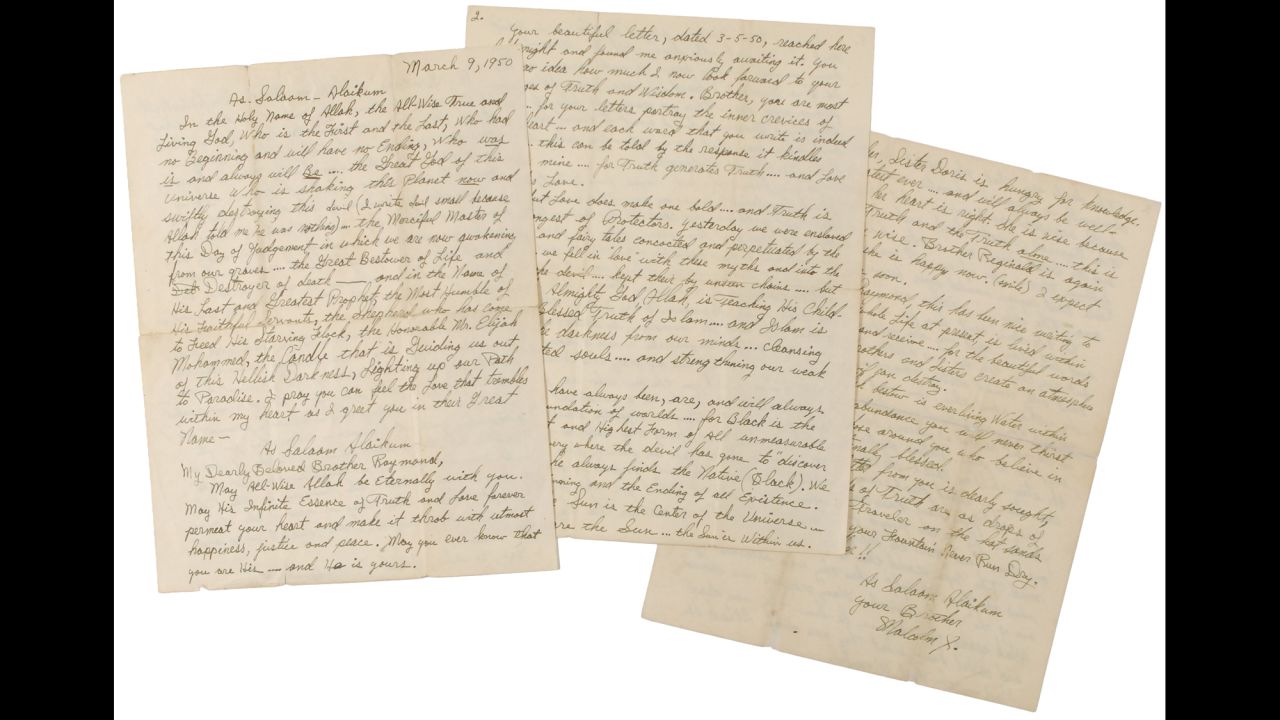 March 9, 1950
As. Salaam - Alaikum
In the Holy Name of Allah, the All-Wise True and
Living God, Who is the First and the Last, Who had
no Beginning and will have no Ending, Who was
is and always will Be .... the Great God of this
Universe Who is shaking this Planet now and
swiftly destroying this devil (I write devil small because
Allah told me he was nothing) ... the Merciful Master of
this Day of Judgement in which we are now awakening
from our graves .... the Great Bestower of Life and
Destroyer of death — and in the Name of
His Last and Greatest Prophet, the Most Humble of
His Faithful Servants, the Shepherd who has come
to Feed His Starving Flock, the Honorable Mr. Elijah
Mohammed, the Candle that is Guiding us out
of this Hellish Darkness, Lighting up our Path
to Paradise. I pray you can feel the Love that trembles
within my heart as I greet you in their Great
Name —
As Salaam Alaikum
My Dearly Beloved Brother Raymond,
May All-Wise Allah be Eternally with you.
May His Infinite Essence of Truth and Love forever
permeat your heart and make it throb with utmost
happiness, justice and peace. May you ever know that
you are His .... and He is yours.
2.
Your beautiful letter, dated 3-5-50, reached here
night and found me anxiously awaiting it. You
no idea how much I now look forward to your
of Truth and Wisdom. Brother, you are most
.. for your letters portray the inner crevices of
... and each word that you write is indeed
. this can be told by the response it kindles
mine .... for Truth generates Truth .... and Love
Love.
But Love does make one bold .... and Truth is
of Protectors. Yesterday we were enslaved
and fairy tales concocted and perpetuated by the
. we fell in love with these myths and into the
the devil .... kept there by unseen chains .... but
Almighty God, Allah, is Teaching His Child-
Blessed Truth of Islam .... and Islam is
darkness from our minds ... cleansing
souls .... and strengthning our weak
have always been, are, and will always
of worlds .... for Black is the
and Highest Form of All unmeasurable
where the devil has gone to "discover
he always finds the Native (Black). We
and the Ending of all Existence.
Sun is the Center of the Universe ...
are the Sun ... the Sun is Within us.
Sister Doris is hungry for knowledge,
ever .... and will always be well-
her heart is right. She is wise because
Truth and the Truth alone .... this is
wise. Brother Reginald is again
she is happy now. (Smile) I expect
soon.
Raymond, this has been nice writing to
whole Life at present, is lived within
and receive .... for the beautiful words
Brothers and Sisters create an atmosphere
of
bestow is everliving Water within
abundance you will never thirst
around you who believe in
blessed.
from you is dearly sought,
of Truth are as drops of
Traveler on the hot sands
your Fountain Never Run Dry.
!!
As Salaam Alaikum
Your Brother
Malcolm X.